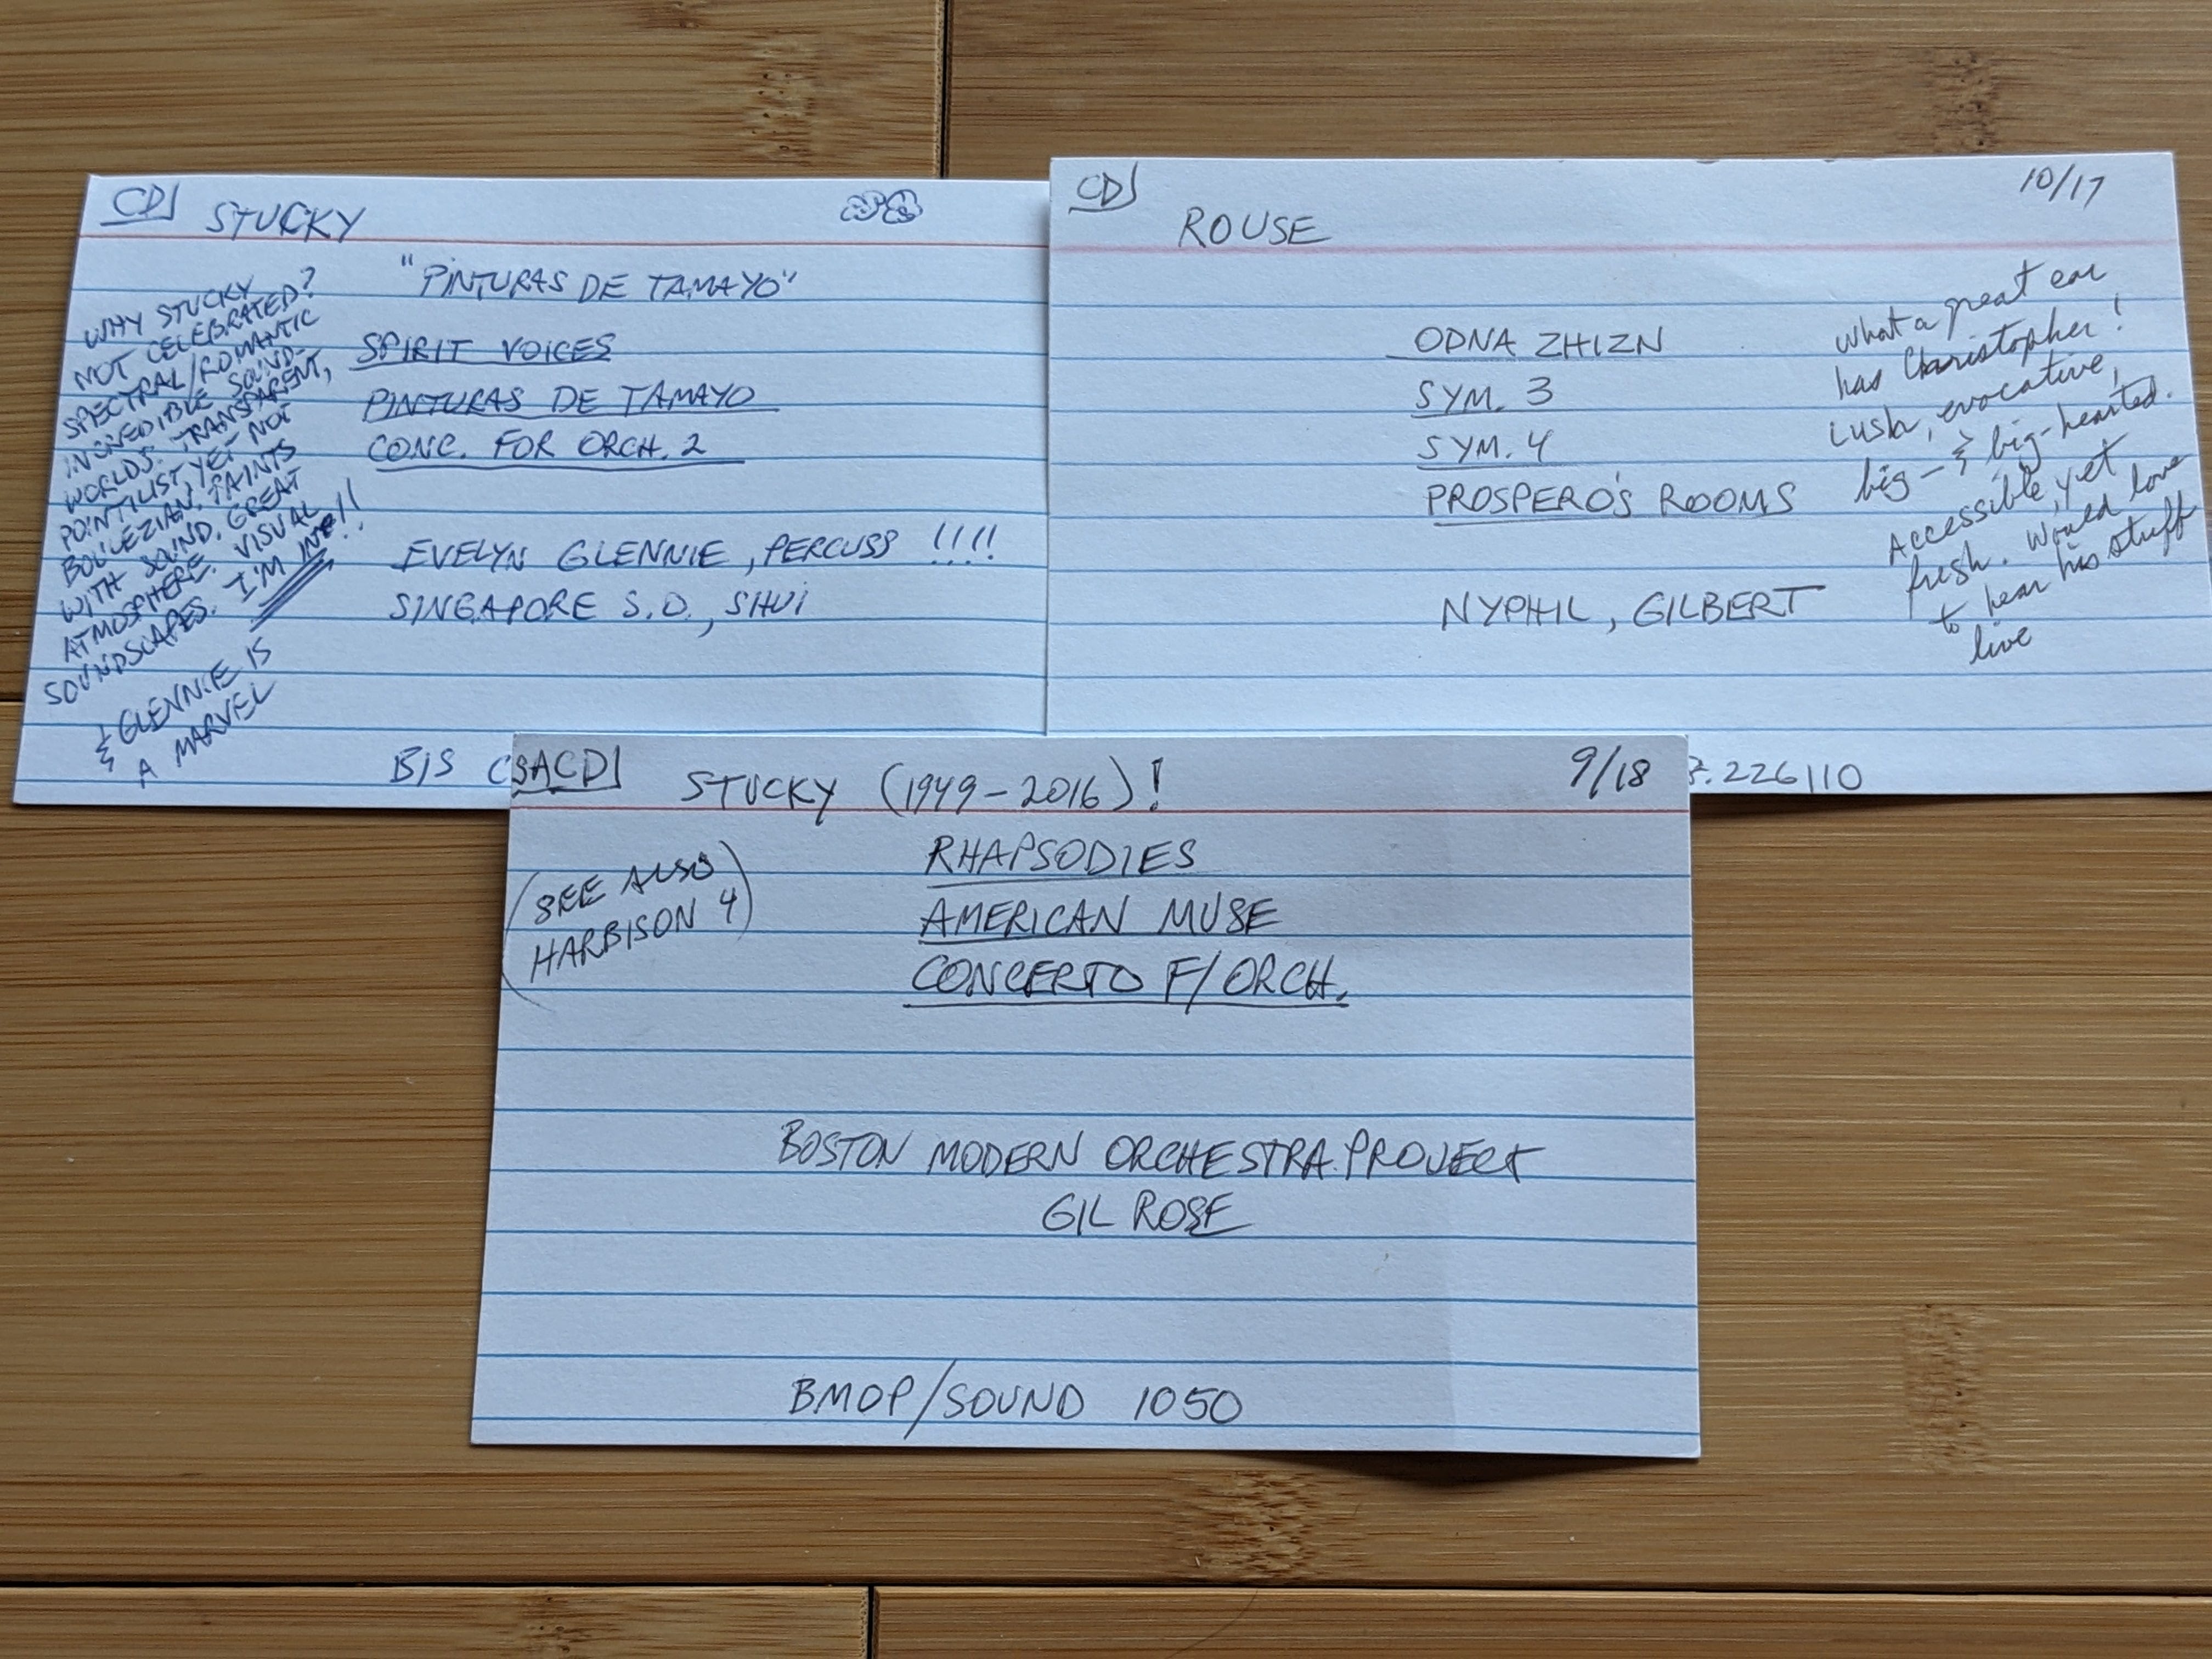 CD
STUCKY
"PINTURAS DE TAMAYO"
SPIRIT VOICES
PINTURAS DE TAMAYO
CONC. FOR ORCH. 2
EVELYN GLENNIE, PERCUSS !!!!
SINGAPORE S.O., SHUI
WHY STUCKY
NOT CELEBRATED?
SPECTRAL/ROMANTIC
INCREDIBLE SOUND-
WORLDS. TRANSPARENT,
POINTILIST, YET NOT
BOULEZIAN. PAINTS
WITH SOUND. GREAT
ATMOSPHERE. VISUAL
SOUNDSCAPES. I'M IN!!
& GLENNIE IS
A MARVEL
BIS
CD
10/17
ROUSE
ODNA ZHIZN
SYM. 3
SYM. 4
PROSPERO'S ROOMS
NYPHIL, GILBERT
What a great ear
has Christopher!
Lush, evocative,
big- & big-hearted.
Accessible, yet
fresh. Would love
to hear his stuff
live
.226110
SACD
9/18
STUCKY (1949-2016)!
(SEE ALSO
HARBISON 4)
RHAPSODIES
AMERICAN MUSE
CONCERTO F/ORCH.
BOSTON MODERN ORCHESTRA PROJECT
GIL ROSE
BMOP/SOUND 1050